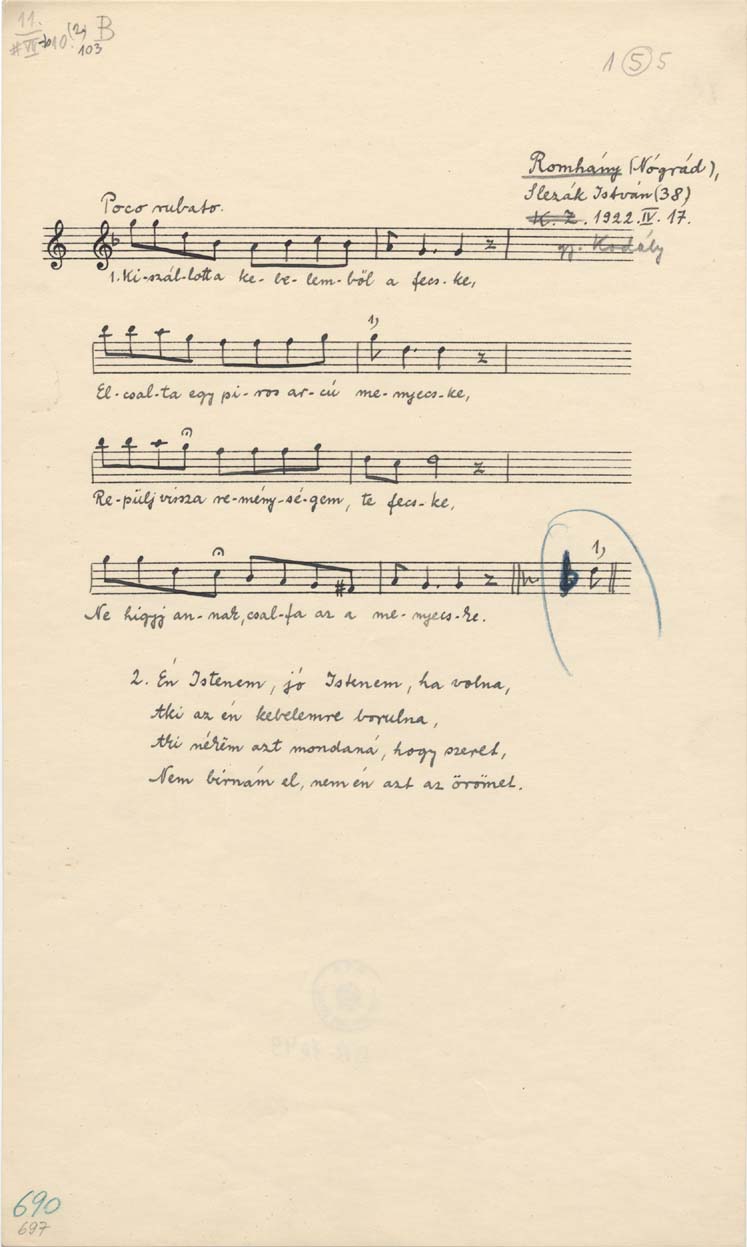 11.
#VII-b 10. (2) B
103
1 5 5
Romhány (Nógrád),
Slezák István (38)
K. Z. 1922. IV. 17.
gy. Kodály
Poco rubato.
1. Ki-szál-lott a ke-be-lem-ből a fecs-ke,
1,
El-csal-ta egy pi-ros ar-cú me-nyecs-ke,
Re-pülj vissza re-mény-sé-gem, te fecs-ke,
1,
Ne higyj an-nak, csal-fa az a me-nyecs-ke.
2. Én Istenem, jó Istenem, ha volna,
Aki az én kebelemre borulna,
Aki nékëm azt mondaná, hogy szeret,
Nem birnám el, nem én azt az örömet.
690
697